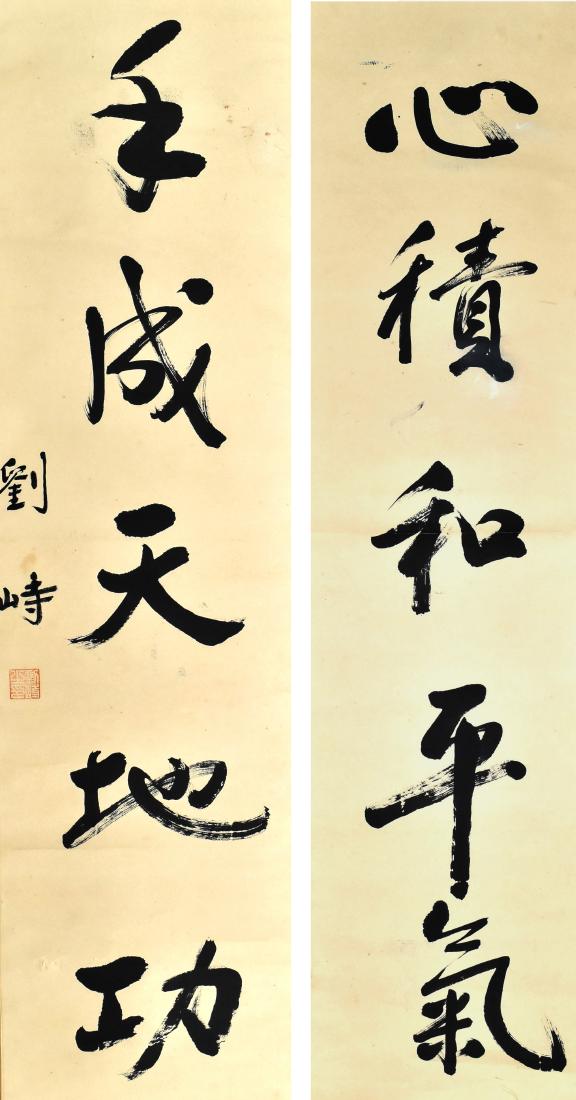 心積和平氣
手成天地功
劉峙